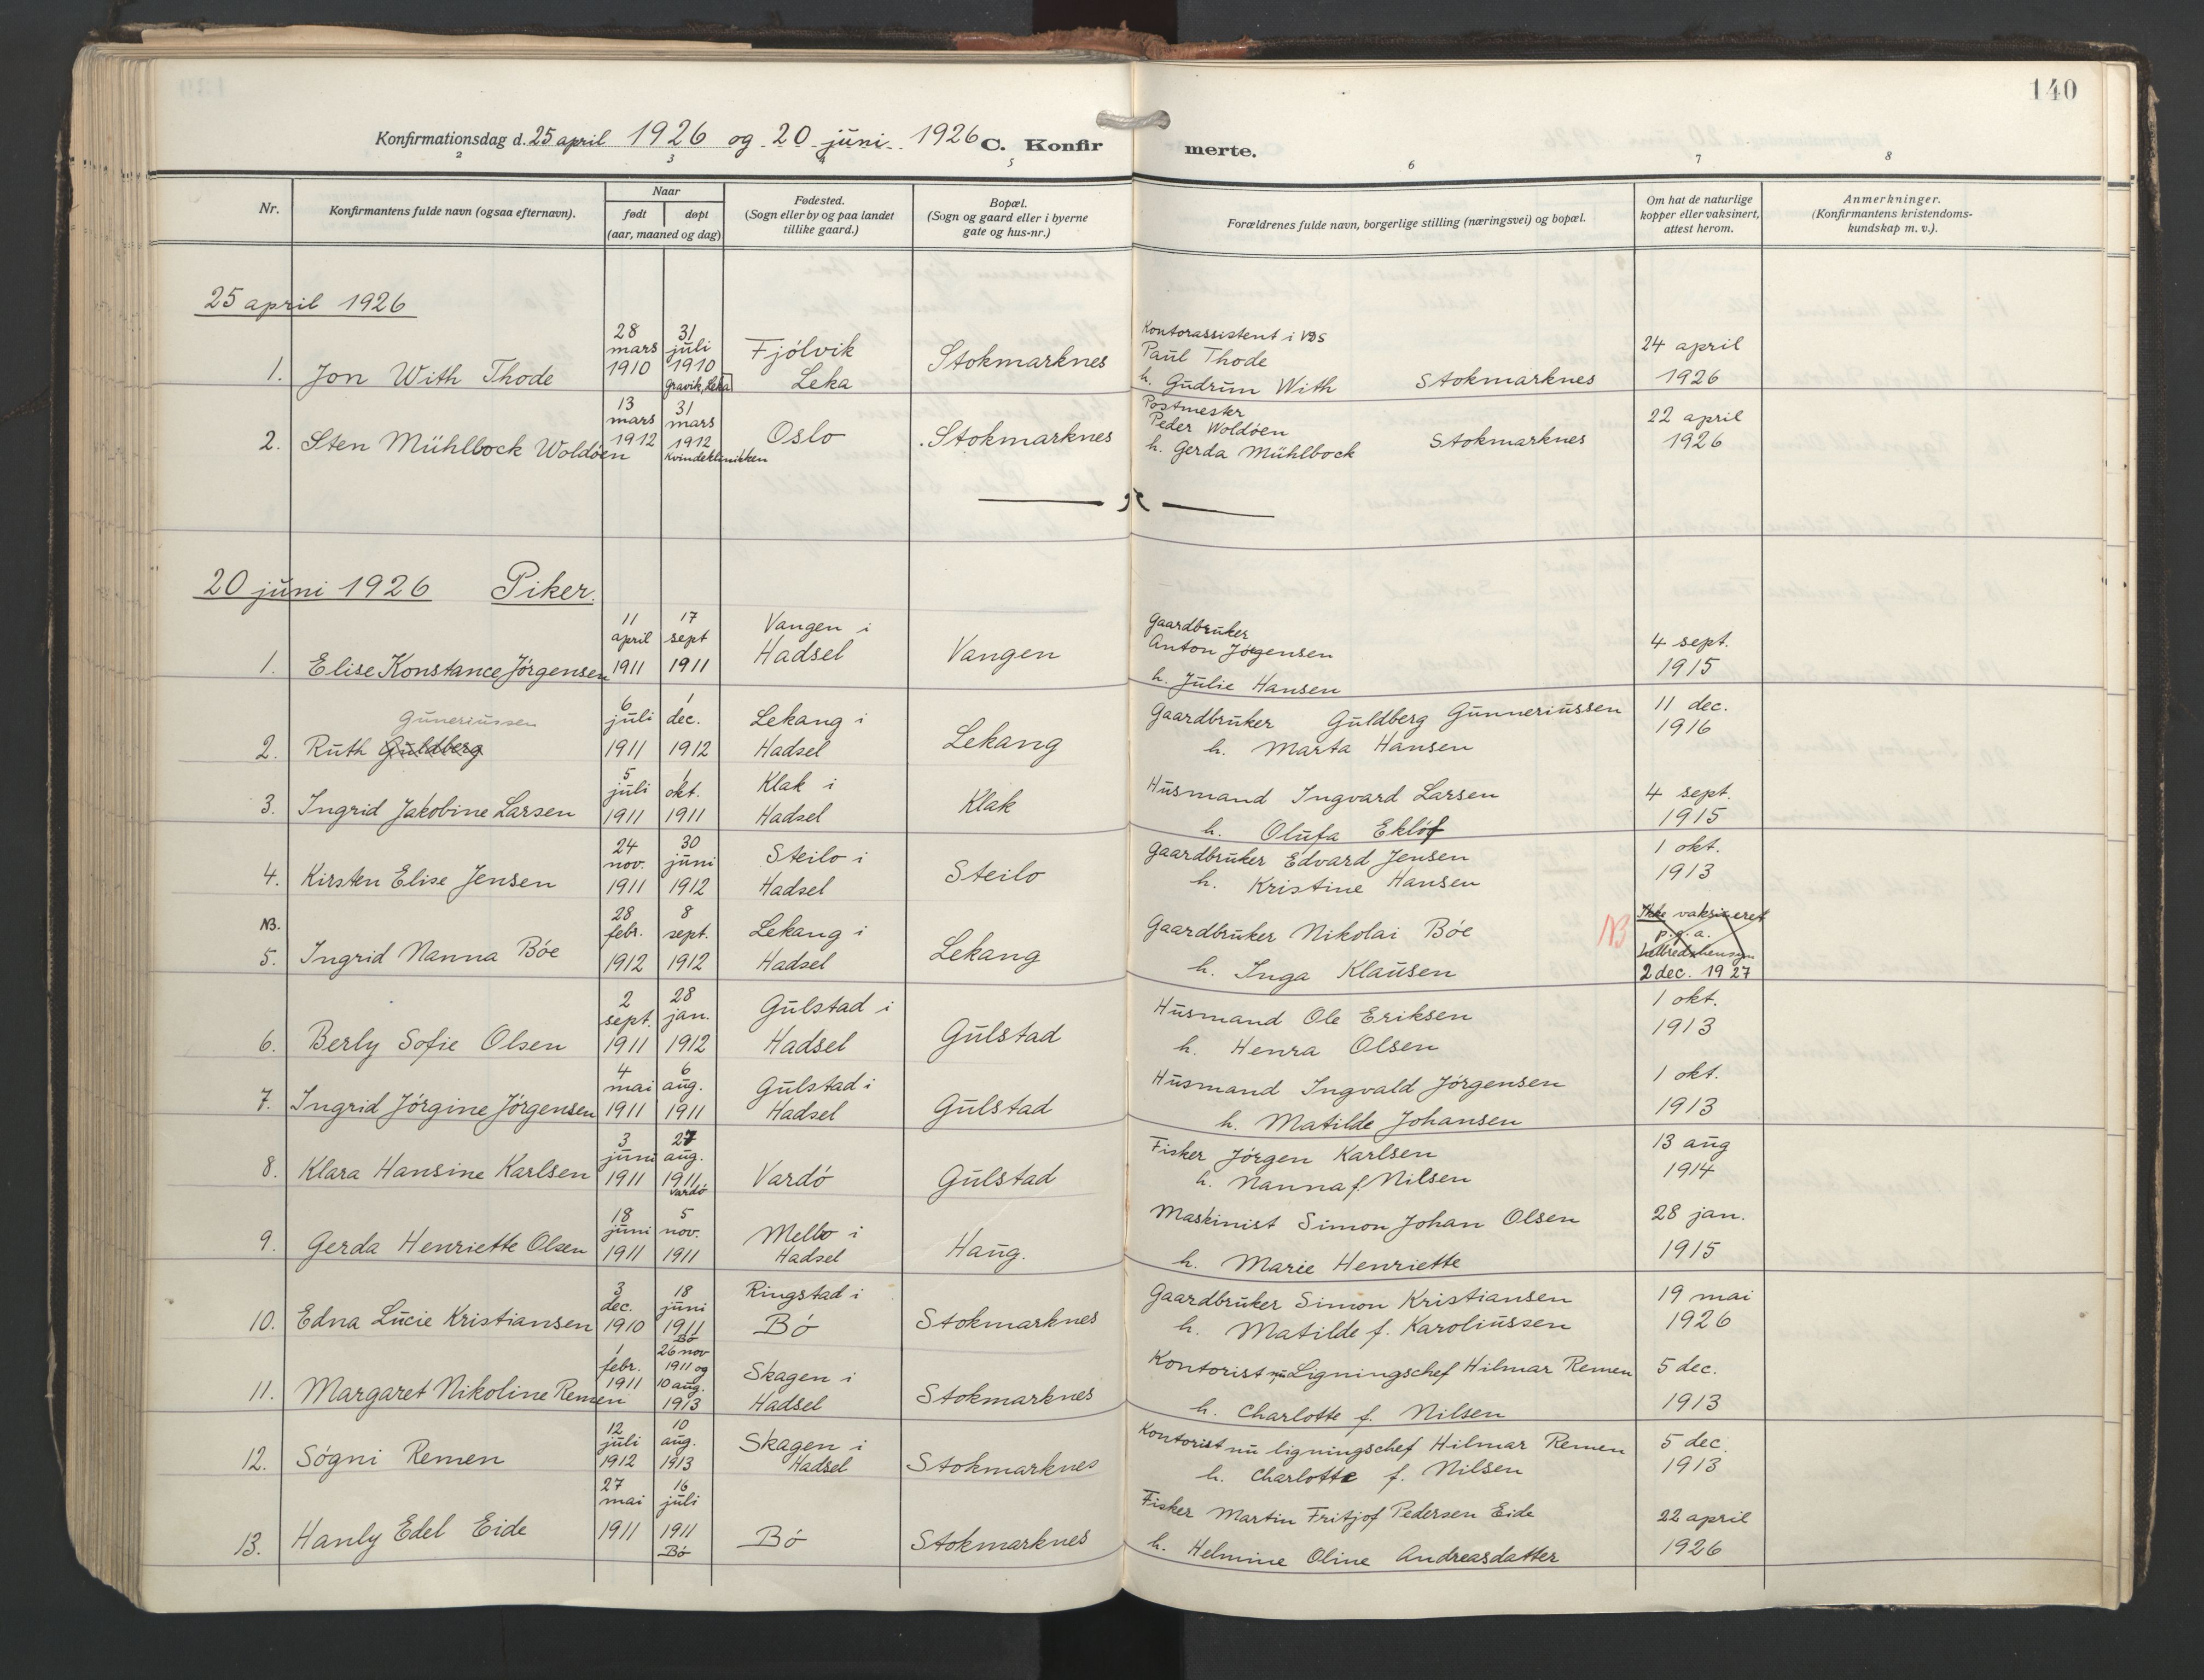 140
Konfirmationsdag d. 25 april 1926 og 20 juni 1926 C. Konfirmerte.
2 3 4 5 6 7 8
Nr. Konfirmantens fulde navn (ogsaa efternavn). Naar født døpt (aar, maaned og dag) Fødested. (Sogn eller by og paa landet tillike gaard.) Bopæl. (Sogn og gaard eller i byerne gate og hus-nr.) Forældrenes fulde navn, borgerlige stilling (næringsvei) og bopæl. Om hat de naturlige kopper eller vaksinert, attest herom. Anmerkninger. (Konfirmantens kristendoms-kundskap m. v.).
25 april 1926
1. Jon With Thode 28 mars 1910 31 juli 1910 Gravik, Leka Fjólvik Leka Stokmarknes Kontorassistent i VDS Paul Thode h. Gudrun With Stokmarknes 24 april 1926
2. Sten Mühlbock Woldóen 13 mars 1912 31 mars 1912 Kvindeklinikken Oslo Stokmarknes Postmester Peder Woldóen h. Gerda Mühlbock Stokmarknes 22 april 1926
20 juni 1926 Piker.
1. Elise Konstance Jórgensen 11 april 1911 17 sept 1911 Vangen i Hadsel Vangen Gaardbruker Anton Jórgensen h. Julie Hansen 4 sept. 1915
Guneriussen
2. Ruth Guldberg 6 juli 1911 1 dec. 1912 Lekang i Hadsel Lekang Gaardbruker Guldberg Gunneriussen h. Marta Hansen 11 dec. 1916
3. Ingrid Jakobine Larsen 5 juli 1911 1 okt. 1911 Klak i Hadsel Klak Husmand Ingvard Larsen h. Olufa Eklóf 4 sept. 1915
4. Kirsten Elise Jensen 24 nov. 1911 30 juni 1912 Steilo i Hadsel Steilo Gaardbruker Edvard Jensen h. Kristine Hansen 1 okt. 1913
NB.
5. Ingrid Nanna Bóe 28 febr. 1912 8 sept. 1912 Lekang i Hadsel Lekang Gaardbruker Nikolai Bóe h. Inga Klausen NB Ikke vaksineret p.g.a. 2 dec. 1927
6. Berly Sofie Olsen 2 sept. 1911 28 jan. 1912 Gulstad i Hadsel Gulstad Husmand Ole Eriksen h. Henra Olsen 1 okt. 1913
7. Ingrid Jórgine Jórgensen 4 mai 1911 6 aug. 1911 Gulstad i Hadsel Gulstad Husmand Ingvald Jórgensen h. Matilde Johansen 1 okt. 1913
8. Klara Hansine Karlsen 3 juni 1911 27 aug. 1911 Vardó Vardó Gulstad Fisker Jórgen Karlsen h. Nanna f. Nilsen 13 aug 1914
9. Gerda Henriette Olsen 18 juni 1911 5 nov. 1911 Melbo i Hadsel Haug. Maskinist Simon Johan Olsen h. Marie Henriette 28 jan. 1915
10. Edna Lucie Kristiansen 3 dec. 1910 18 juni 1911 Bó Ringstad i Bó Stokmarknes Gaardbruker Simon Kristiansen h. Matilde f. Karoliussen 19 mai 1926
11. Margaret Nikoline Remen 1 febr. 1911 26 nov 1911 og 10 aug. 1913 Skagen i Hadsel Stokmarknes Kontorist nu Ligningschef Hilmar Remen h. Charlotte f. Nilsen 5 dec. 1913
12. Sógni Remen 12 juli 1912 10 aug. 1913 Skagen i Hadsel Stokmarknes Kontorist nu ligningschef Hilmar Remen h. Charlotte f. Nilsen 5 dec. 1913
13. Hanly Edel Eide 27 mai 1911 16 juli 1911 Bó Bó Stokmarknes Fisker Martin Fritjof Pedersen Eide h. Helmine Oline Andreasdatter 22 april 1926